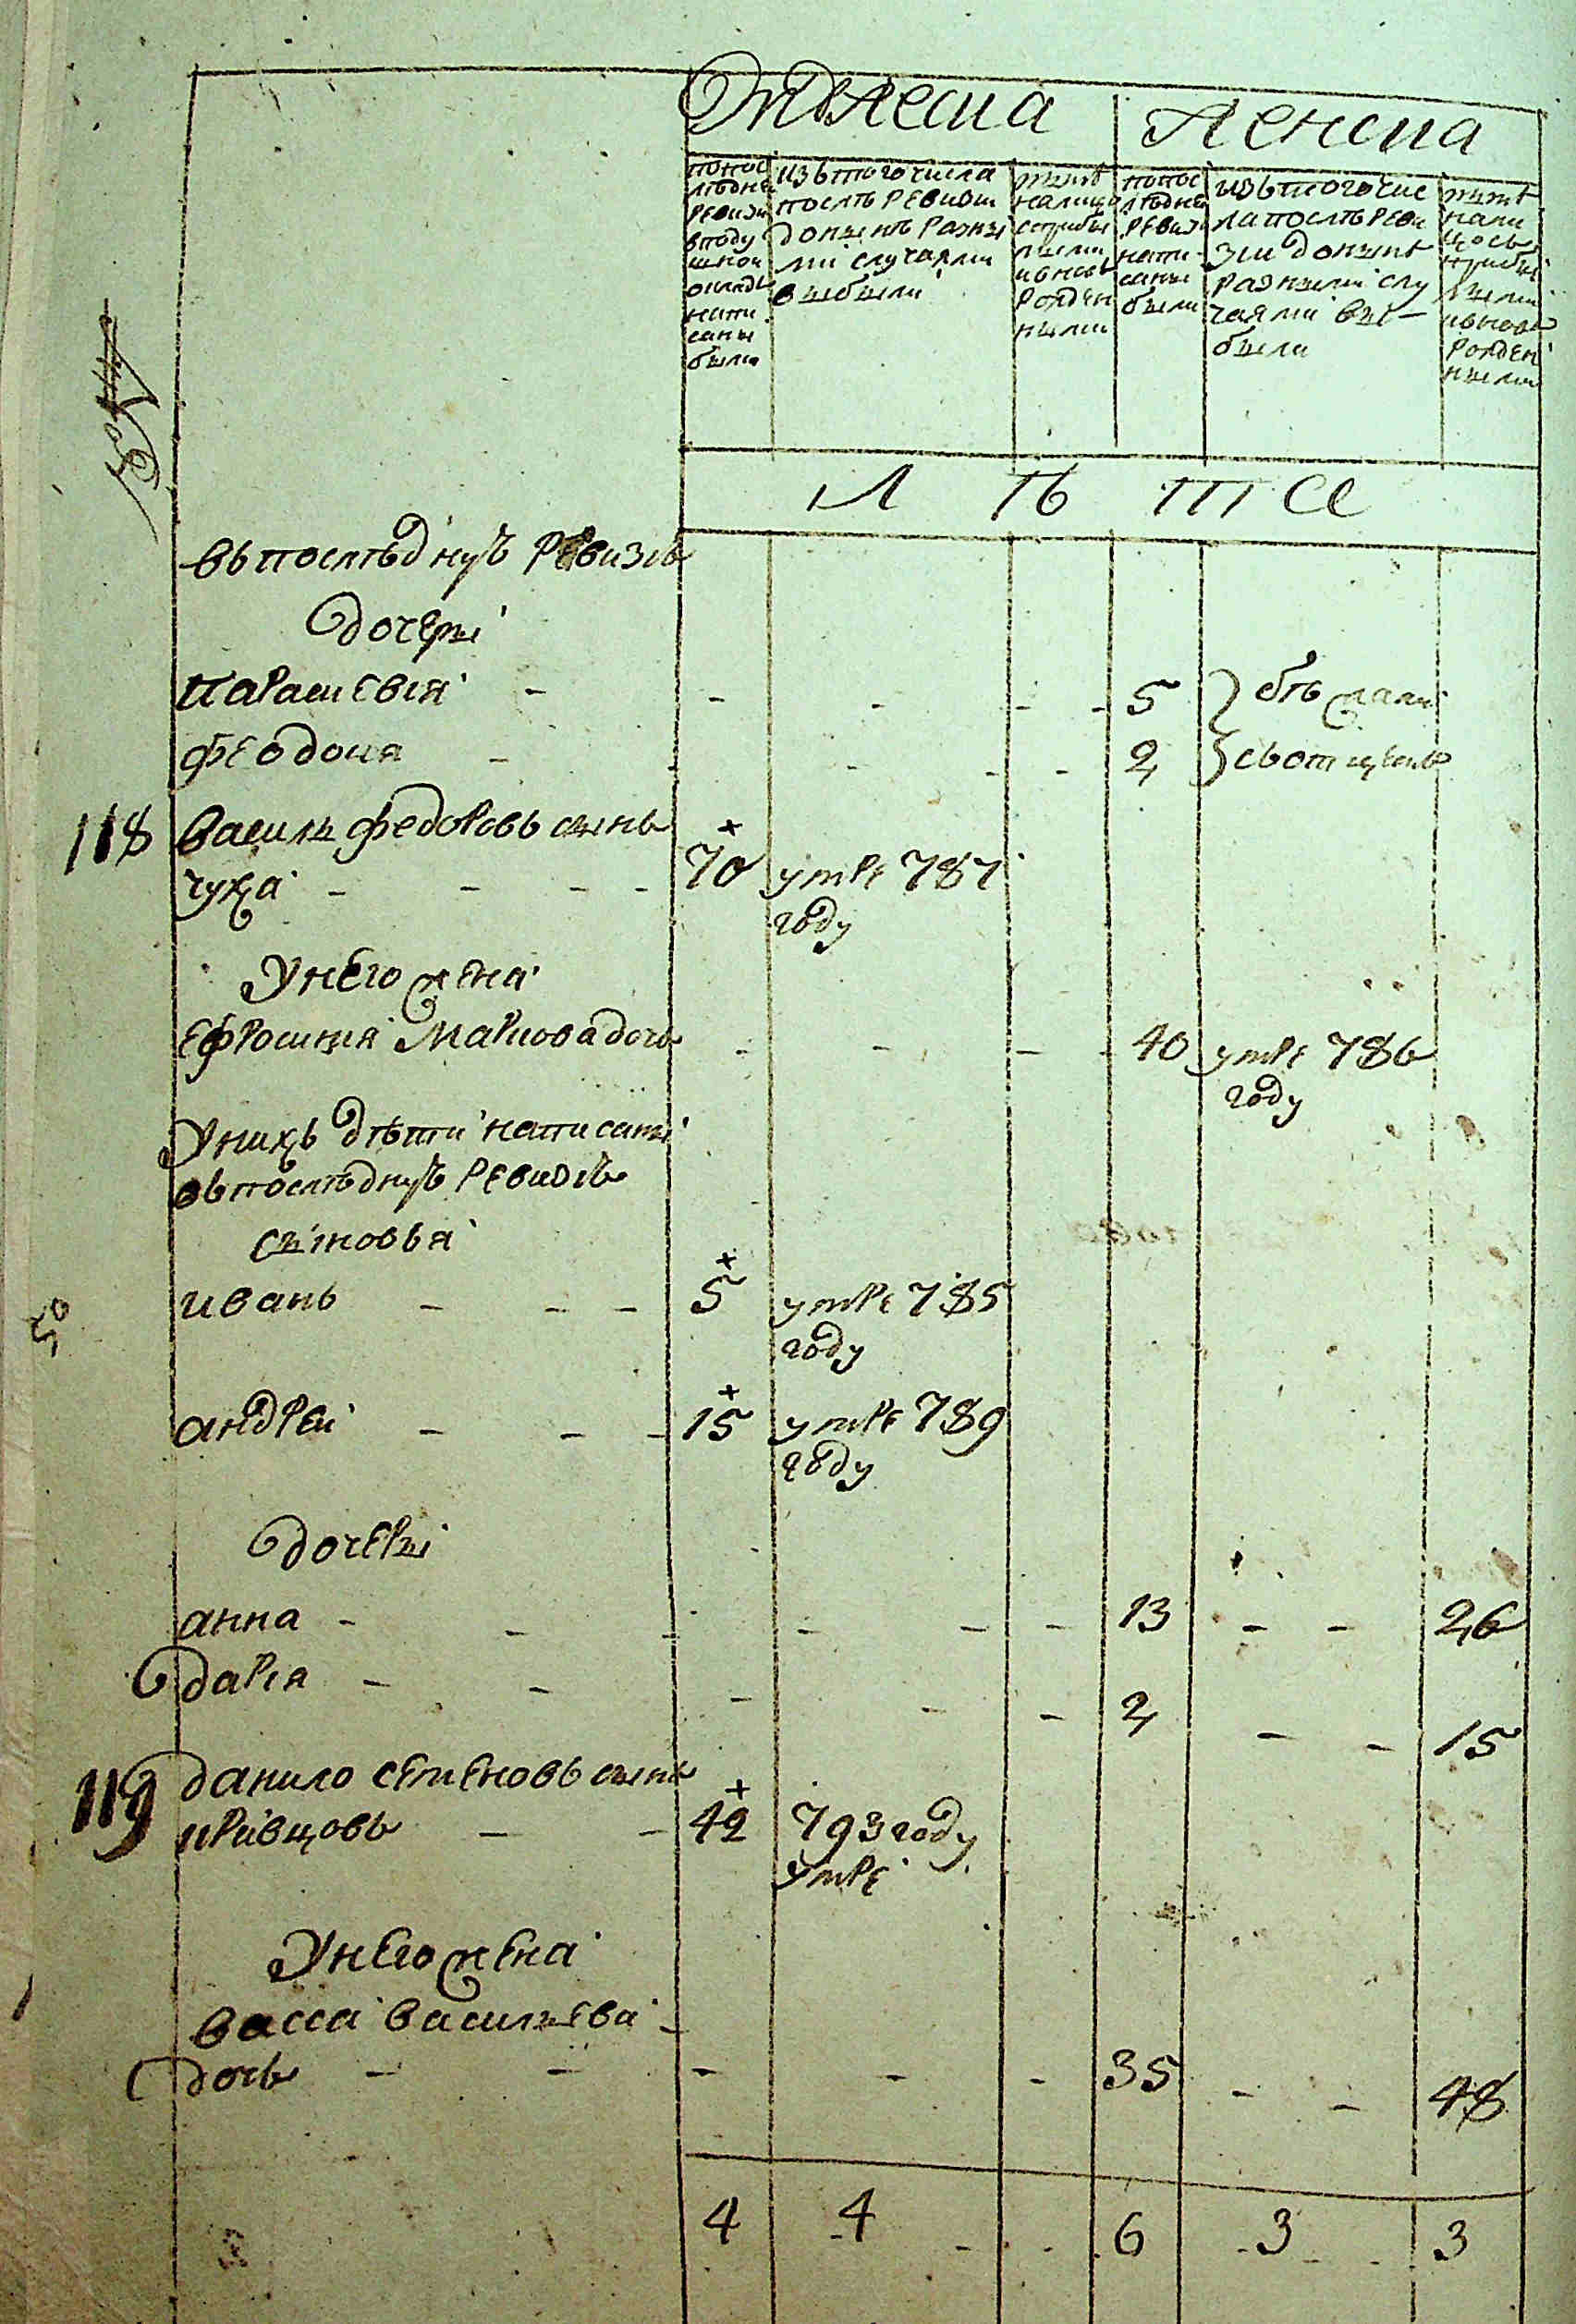 Мужеска Женска
по пос
лѣдне
ревизи
в поду
шной
окладъ
напи
саны
были
изъ того числа
послѣ ревизи
до ныне разны
ми случаями
выбыли
ныне
налицо
с прибы
лыми
и вновь
рожден
ными
по пос
лѣдне
ревизи
напи
саны
были
изъ того чис
ла послѣ реви
зи до ныне
разными слу
чаями вы-
были
ныне
нали
цо съ
прибы
лыми
и вновь
рожден
ными
Л Ѣ Т А
въ последную ревизию
дочери
Парасковия - - - - - 5 } бѣжали
Феодосия - - - - - 2 } съ отцемъ
118 Василий Федоровъ сынъ
Чуха - - - - 70 умре 787
году
У него жена
Ефросиния Маркова дочь - - - - 40 умре 786
году
У нихъ дѣти написаны
въ последную ревизию
сыновья
Иванъ - - - 5 умре 785
году
Андрей - - - 15 умре 789
году
дочери
Анна - - - - - - 13 - - 26
Дария - - - - - 2 - - 15
119 Данило Семеновъ сынъ
Кривцовъ - - 42 793 году
умре
У него жена
Васса Васильева -
дочь - - - - - 35 - - 48
4 4 - - 6 - 3 - - 3
50